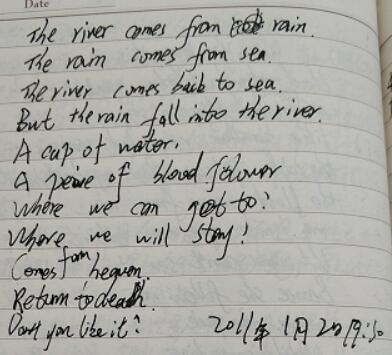 Date
The river comes from rain.
The rain comes from sea.
The river comes back to sea.
But the rain fall into the river.
A cup of water.
A peice of blood flower
Where we can get to?
Where we will stay?
Comes from heaven.
Return to death.
you like it? 2011年1月20 19:30